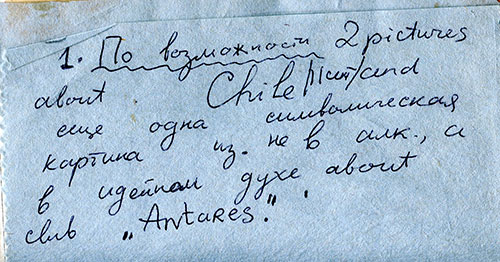 1. По возможности 2 pictures
about Chile /and
еще одна символическая
картина из. не в алк., а
в идейном духе about
club „Antares".